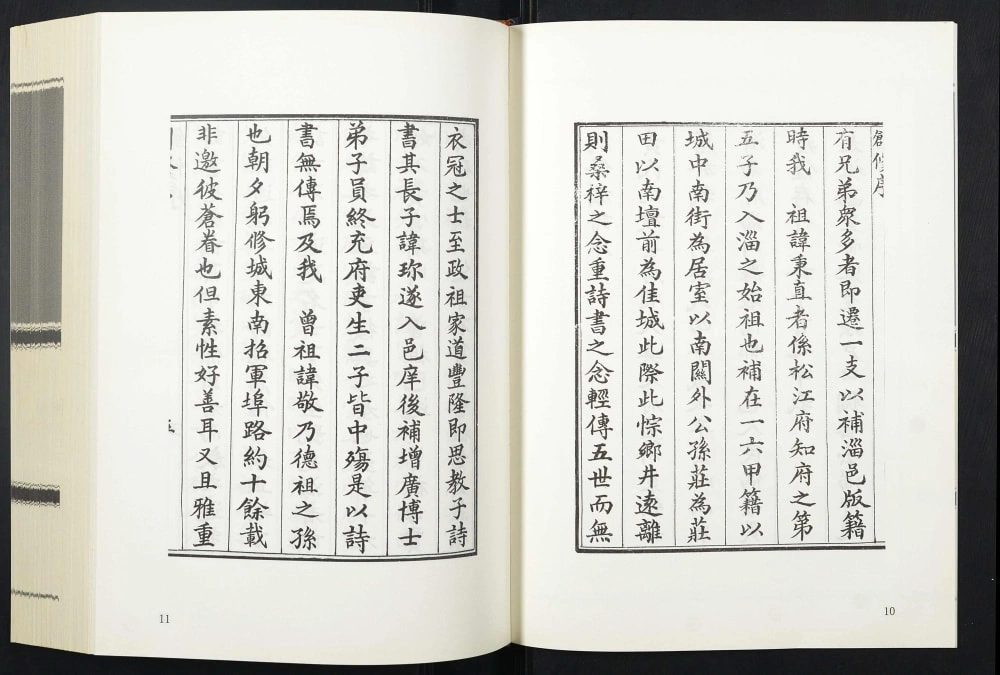 創修序
有兄弟衆多者即遷一支以補淄邑版籍
時我　祖諱秉直者係松江府知府之第
五子乃入淄之始祖也補在一六甲籍以
城中南街為居室以南關外公孫莊為莊
田以南壇前為佳城此際此悰鄉井遠離
則桑梓之念重詩書之念輕傳五世而無
10
衣冠之士至政祖家道豐隆即思教子詩
書其長子諱珎遂入邑庠後補增廣博士
弟子員終充府吏生二子皆中殤是以詩
書無傳焉及我　曾祖諱敬乃德祖之孫
也朝夕躬修城東南招軍埠路約十餘載
非邀彼蒼眷也但素性好善耳又且雅重
11